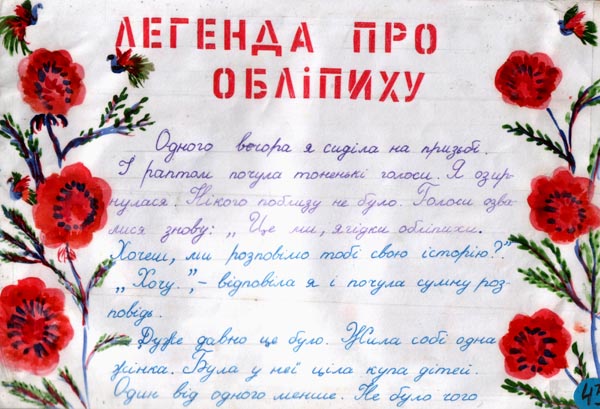 ЛЕГЕНДА ПРО
ОБЛІПИХУ
Одного вечора я сиділа на призьбі.
І раптом почула тоненькі голоси. Я озир-
нулася. Нікого поблизу не було. Голоси озва-
лися знову: „Це ми, ягідки обліпихи.
Хочеш, ми розповімо тобі свою історію?”
„Хочу.”,- відповіла я і почула сумну роз-
повідь.
Дуже давно це було. Жила собі одна
жінка. Була у неї ціла купа дітей.
Один від одного менше. Не було чого
43